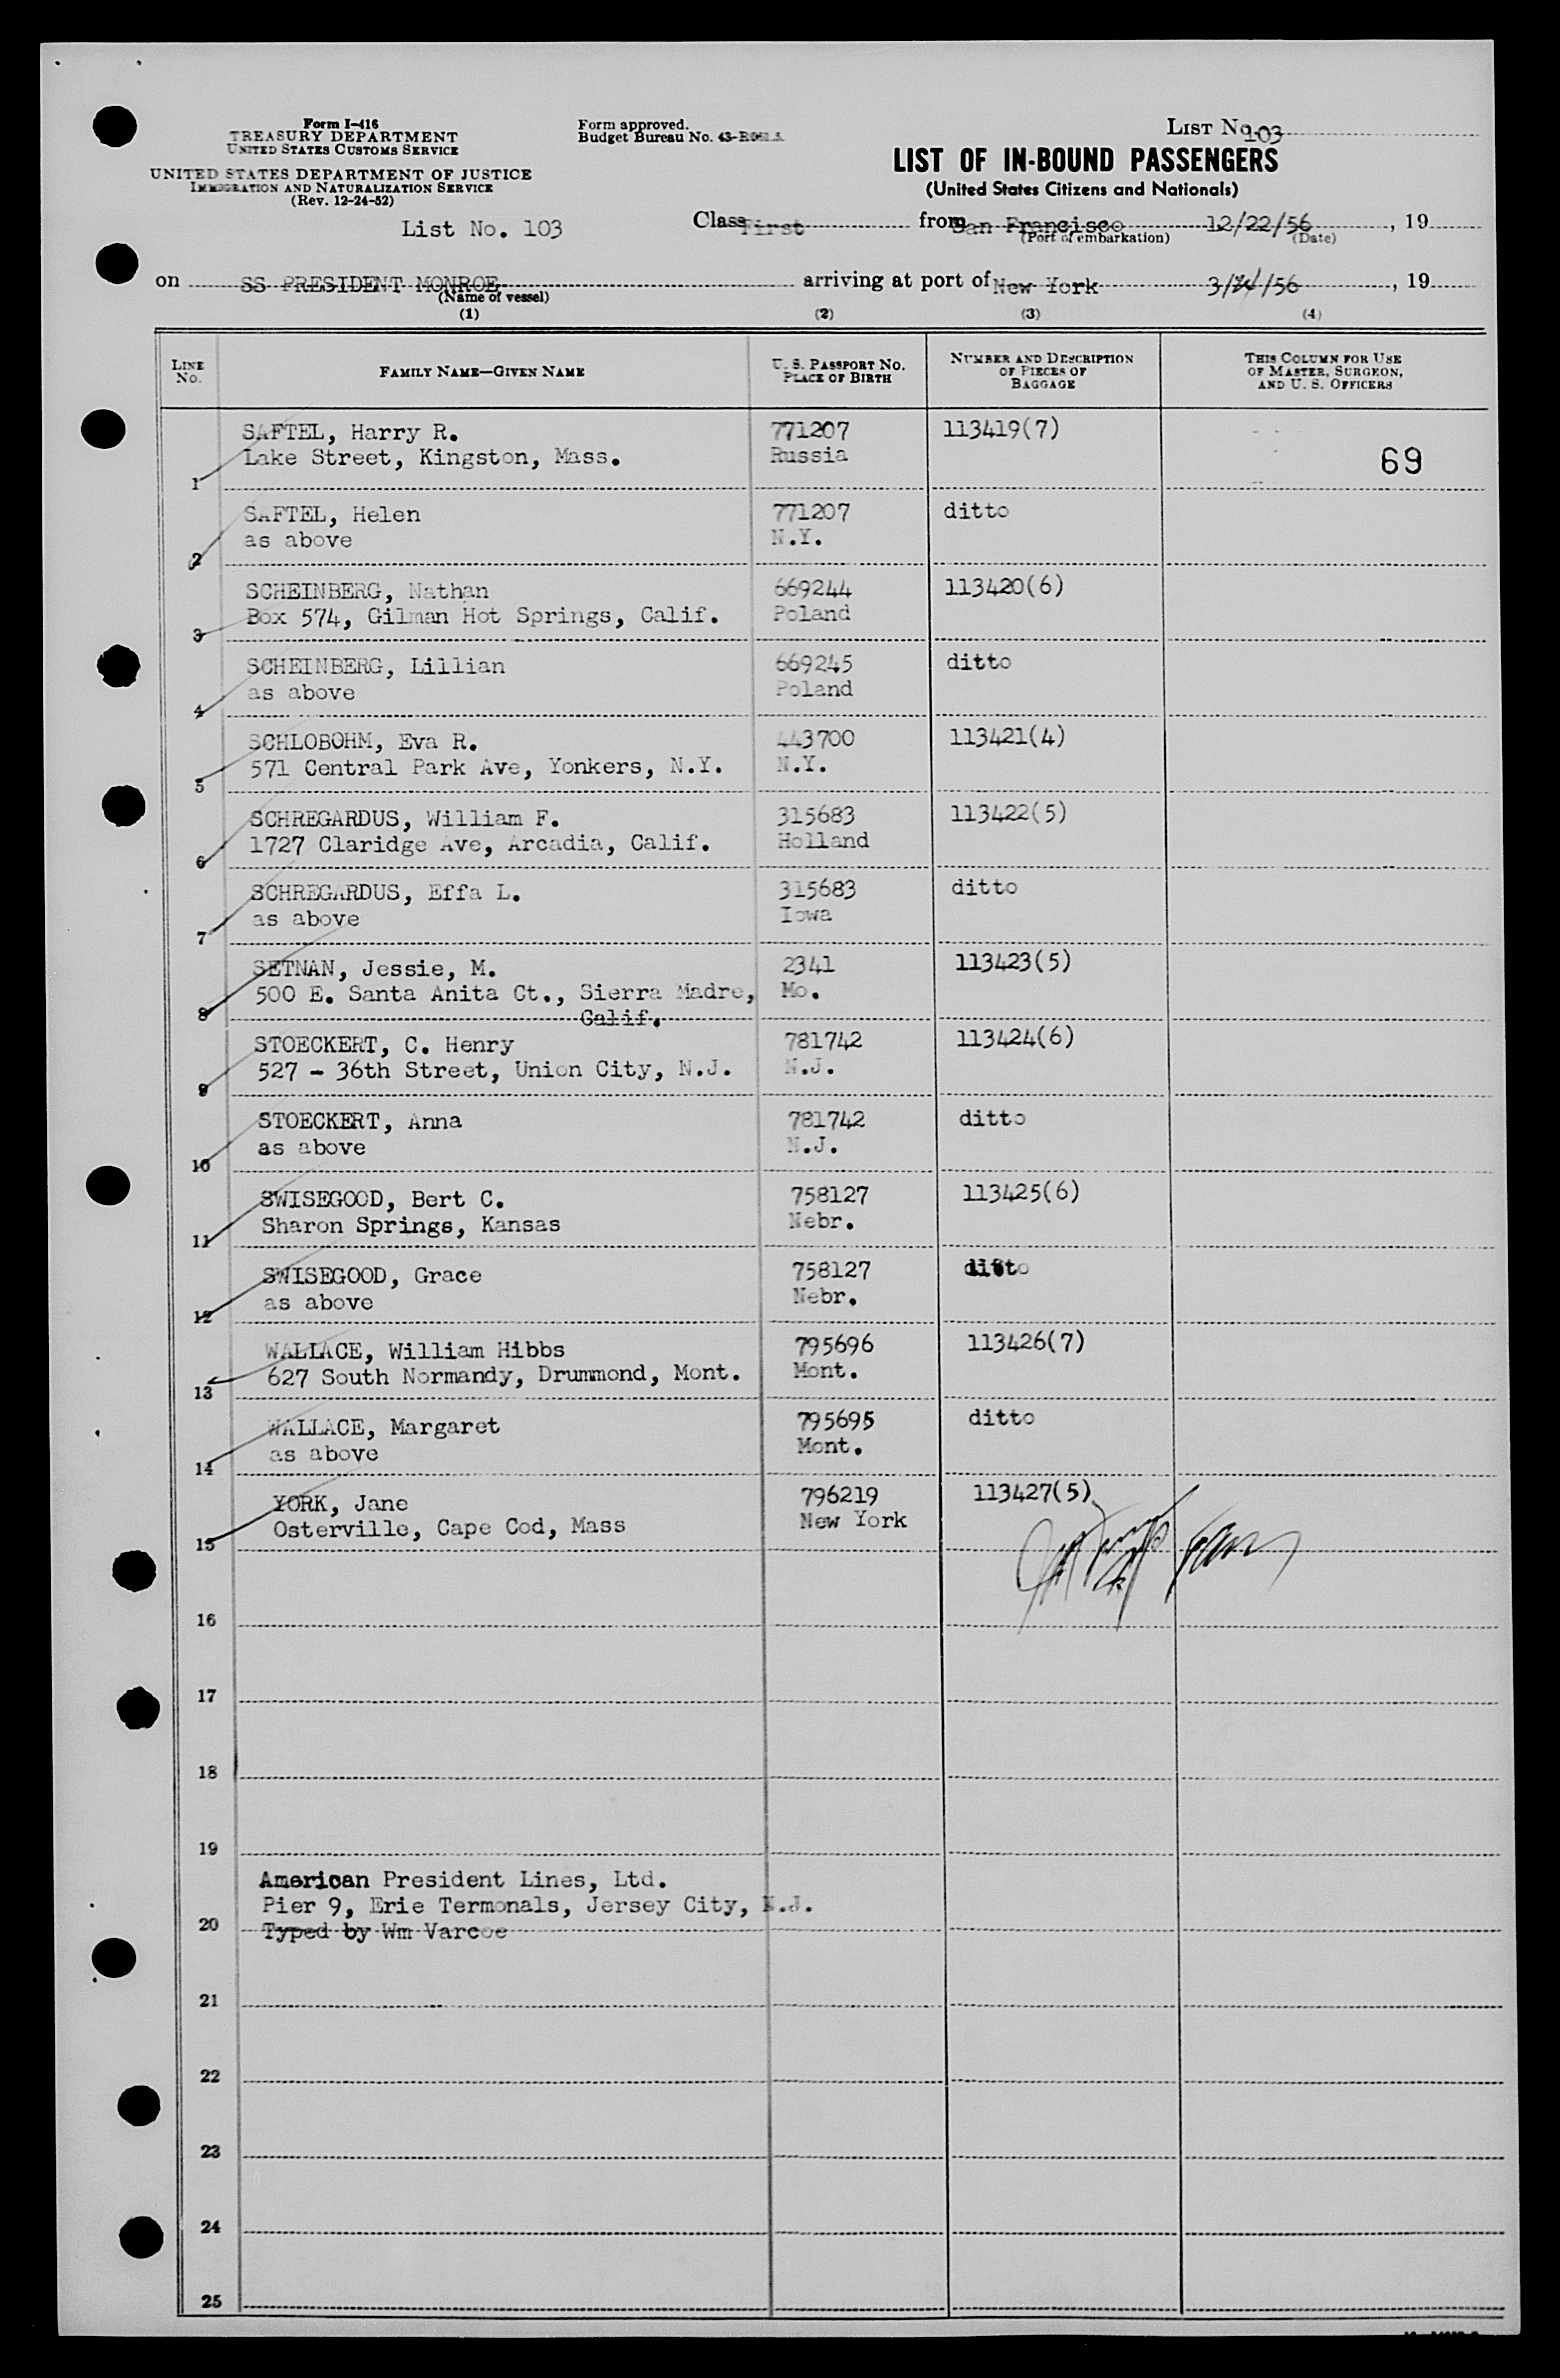 Form I-416
TREASURY DEPARTMENT
UNITED STATES CUSTOMS SERVICE
UNITED STATES DEPARTMENT OF JUSTICE
IMMIGRATION AND NATURALIZATION SERVICE
(Rev. 12-24-52)
Form approved.
Budget Bureau No. 43-
LIST No. 103
LIST OF IN-BOUND PASSENGERS
(United States Citizens and Nationals)
List No. 103
Class First from San Francisco 12/22/56, 19
(Port of embarkation) (Date)
on SS PRESIDENT MONROE arriving at port of New York 3/ /56, 19
(Name of vessel)
(1) (2) (3) (4)
LINE No. FAMILY NAME—GIVEN NAME U. S. PASSPORT No. PLACE OF BIRTH NUMBER AND DESCRIPTION OF PIECES OF BAGGAGE THIS COLUMN FOR USE OF MASTER, SURGEON, AND U. S. OFFICERS
SAFTEL, Harry R. 771207 113419(7)
1 Lake Street, Kingston, Mass. Russia 69
SAFTEL, Helen 771207 ditto
2 as above N.Y.
SCHEINBERG, Nathan 669244 113420(6)
3 Box 574, Gilman Hot Springs, Calif. Poland
SCHEINBERG, Lillian 669245 ditto
4 as above Poland
SCHLOBOHM, Eva R. 443700 113421(4)
5 571 Central Park Ave, Yonkers, N.Y. N.Y.
SCHREGARDUS, William F. 315683 113422(5)
6 1727 Claridge Ave, Arcadia, Calif. Holland
SCHREGARDUS, Effa L. 315683 ditto
7 as above Iowa
SETNAN, Jessie, M. 2341 113423(5)
8 500 E. Santa Anita Ct., Sierra Madre, Mo.
Calif.
STOECKERT, C. Henry 781742 113424(6)
9 527 - 36th Street, Union City, N.J. N.J.
STOECKERT, Anna 781742 ditto
10 as above N.J.
SWISEGOOD, Bert C. 758127 113425(6)
11 Sharon Springs, Kansas Nebr.
SWISEGOOD, Grace 758127 ditto
12 as above Nebr.
WALLACE, William Hibbs 795696 113426(7)
13 627 South Normandy, Drummond, Mont. Mont.
WALLACE, Margaret 795695 ditto
14 as above Mont.
YORK, Jane 796219 113427(5)
15 Osterville, Cape Cod, Mass New York
16
17
18
19
American President Lines, Ltd.
Pier 9, Erie Termonals, Jersey City, N.J.
20 Typed by Wm Varcoe
21
22
23
24
25